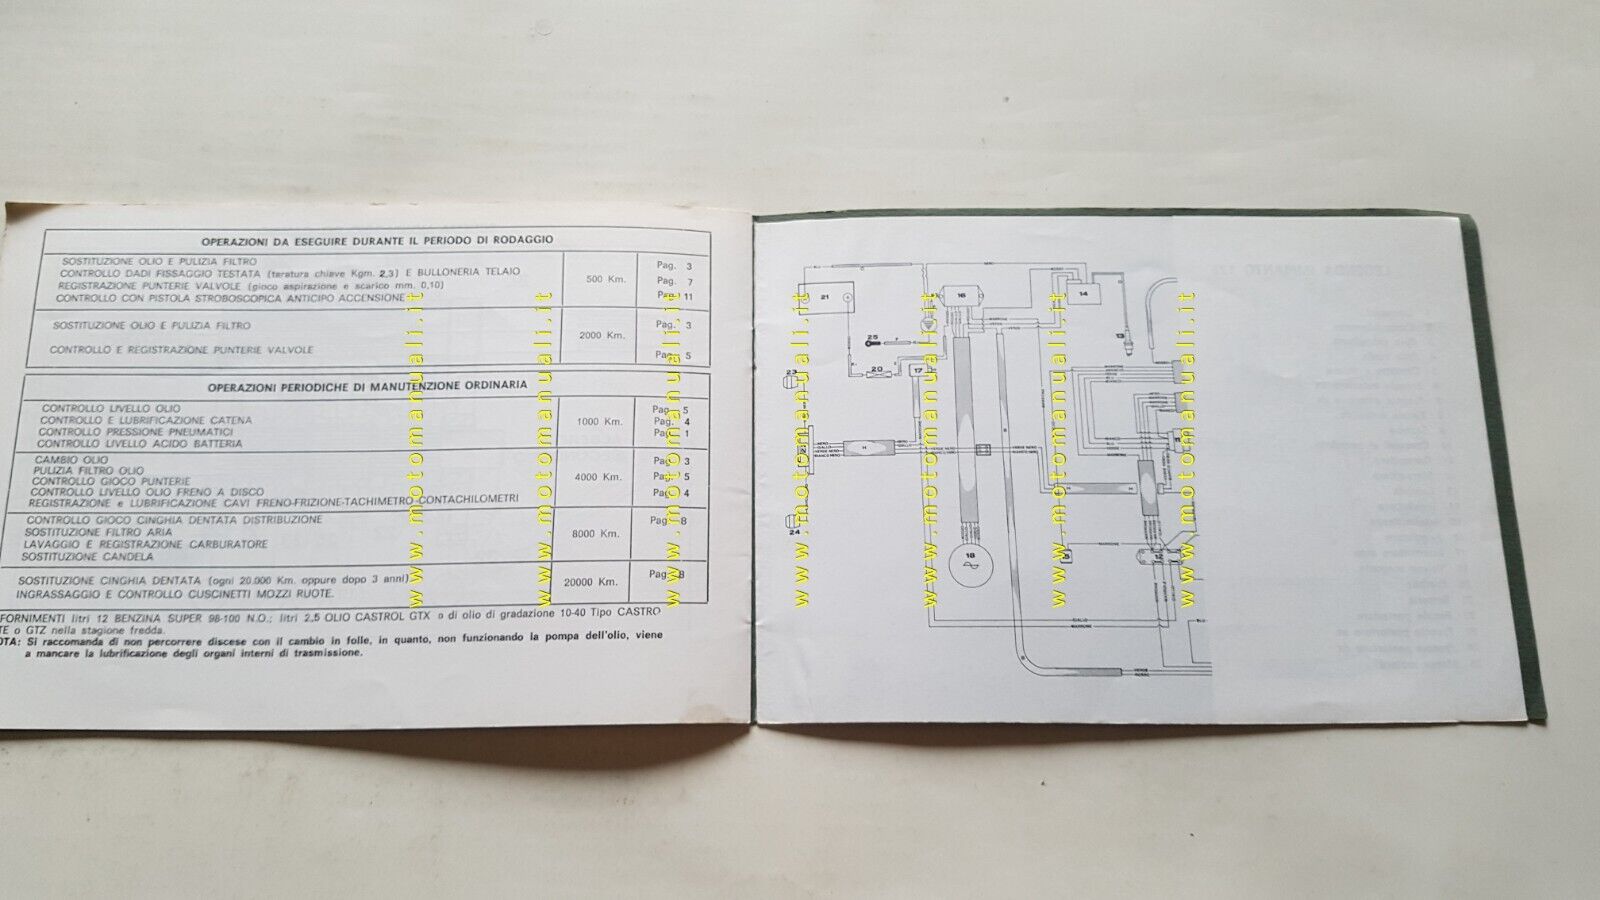 OPERAZIONI DA ESEGUIRE DURANTE IL PERIODO DI RODAGGIO
SOSTITUZIONE OLIO E PULIZIA FILTRO
CONTROLLO DADI FISSAGGIO TESTATA (taratura chiave Kgm. 2,3) E BULLONERIA TELAIO
REGISTRAZIONE PUNTERIE VALVOLE (gioco aspirazione e scarico mm. 0,10)
CONTROLLO CON PISTOLA STROBOSCOPICA ANTICIPO ACCENSIONE
500 Km.
Pag. 3
Pag. 7
Pag. 11
SOSTITUZIONE OLIO E PULIZIA FILTRO
CONTROLLO E REGISTRAZIONE PUNTERIE VALVOLE
2000 Km.
Pag. 3
Pag. 5
OPERAZIONI PERIODICHE DI MANUTENZIONE ORDINARIA
CONTROLLO LIVELLO OLIO
CONTROLLO E LUBRIFICAZIONE CATENA
CONTROLLO PRESSIONE PNEUMATICI
CONTROLLO LIVELLO ACIDO BATTERIA
1000 Km.
Pag. 5
Pag. 4
Pag. 1
CAMBIO OLIO
PULIZIA FILTRO OLIO
CONTROLLO GIOCO PUNTERIE
CONTROLLO LIVELLO OLIO FRENO A DISCO
REGISTRAZIONE e LUBRIFICAZIONE CAVI FRENO-FRIZIONE-TACHIMETRO-CONTACHILOMETRI
4000 Km.
Pag. 3
Pag. 5
Pag. 4
CONTROLLO GIOCO CINGHIA DENTATA DISTRIBUZIONE
SOSTITUZIONE FILTRO ARIA
LAVAGGIO E REGISTRAZIONE CARBURATORE
SOSTITUZIONE CANDELA
8000 Km.
Pag. 8
SOSTITUZIONE CINGHIA DENTATA (ogni 20.000 Km. oppure dopo 3 anni)
INGRASSAGGIO E CONTROLLO CUSCINETTI MOZZI RUOTE.
20000 Km.
Pag. 8
FORNIMENTI litri 12 BENZINA SUPER 98-100 N.O.; litri 2,5 OLIO CASTROL GTX o di olio di gradazione 10-40 Tipo CASTRO
TE o GTZ nella stagione fredda.
OTA: Si raccomanda di non percorrere discese con il cambio in folle, in quanto, non funzionando la pompa dell'olio, viene
a mancare la lubrificazione degli organi interni di trasmissione.
www.motomanuali.it
www.motomanuali.it
www.motomanuali.it
www.motomanuali.it
www.motomanuali.it
www.motomanuali.it
www.motomanuali.it
BLU
NERO
21
16
14
25
20
17
23
24
18
NERO
GIALLO
VERDE NERO
BIANCO NERO
H
VERDE NERO
BIANCO NERO
MARRONE
GIALLO
MARRONE
VERDE
ROSSO
BLU